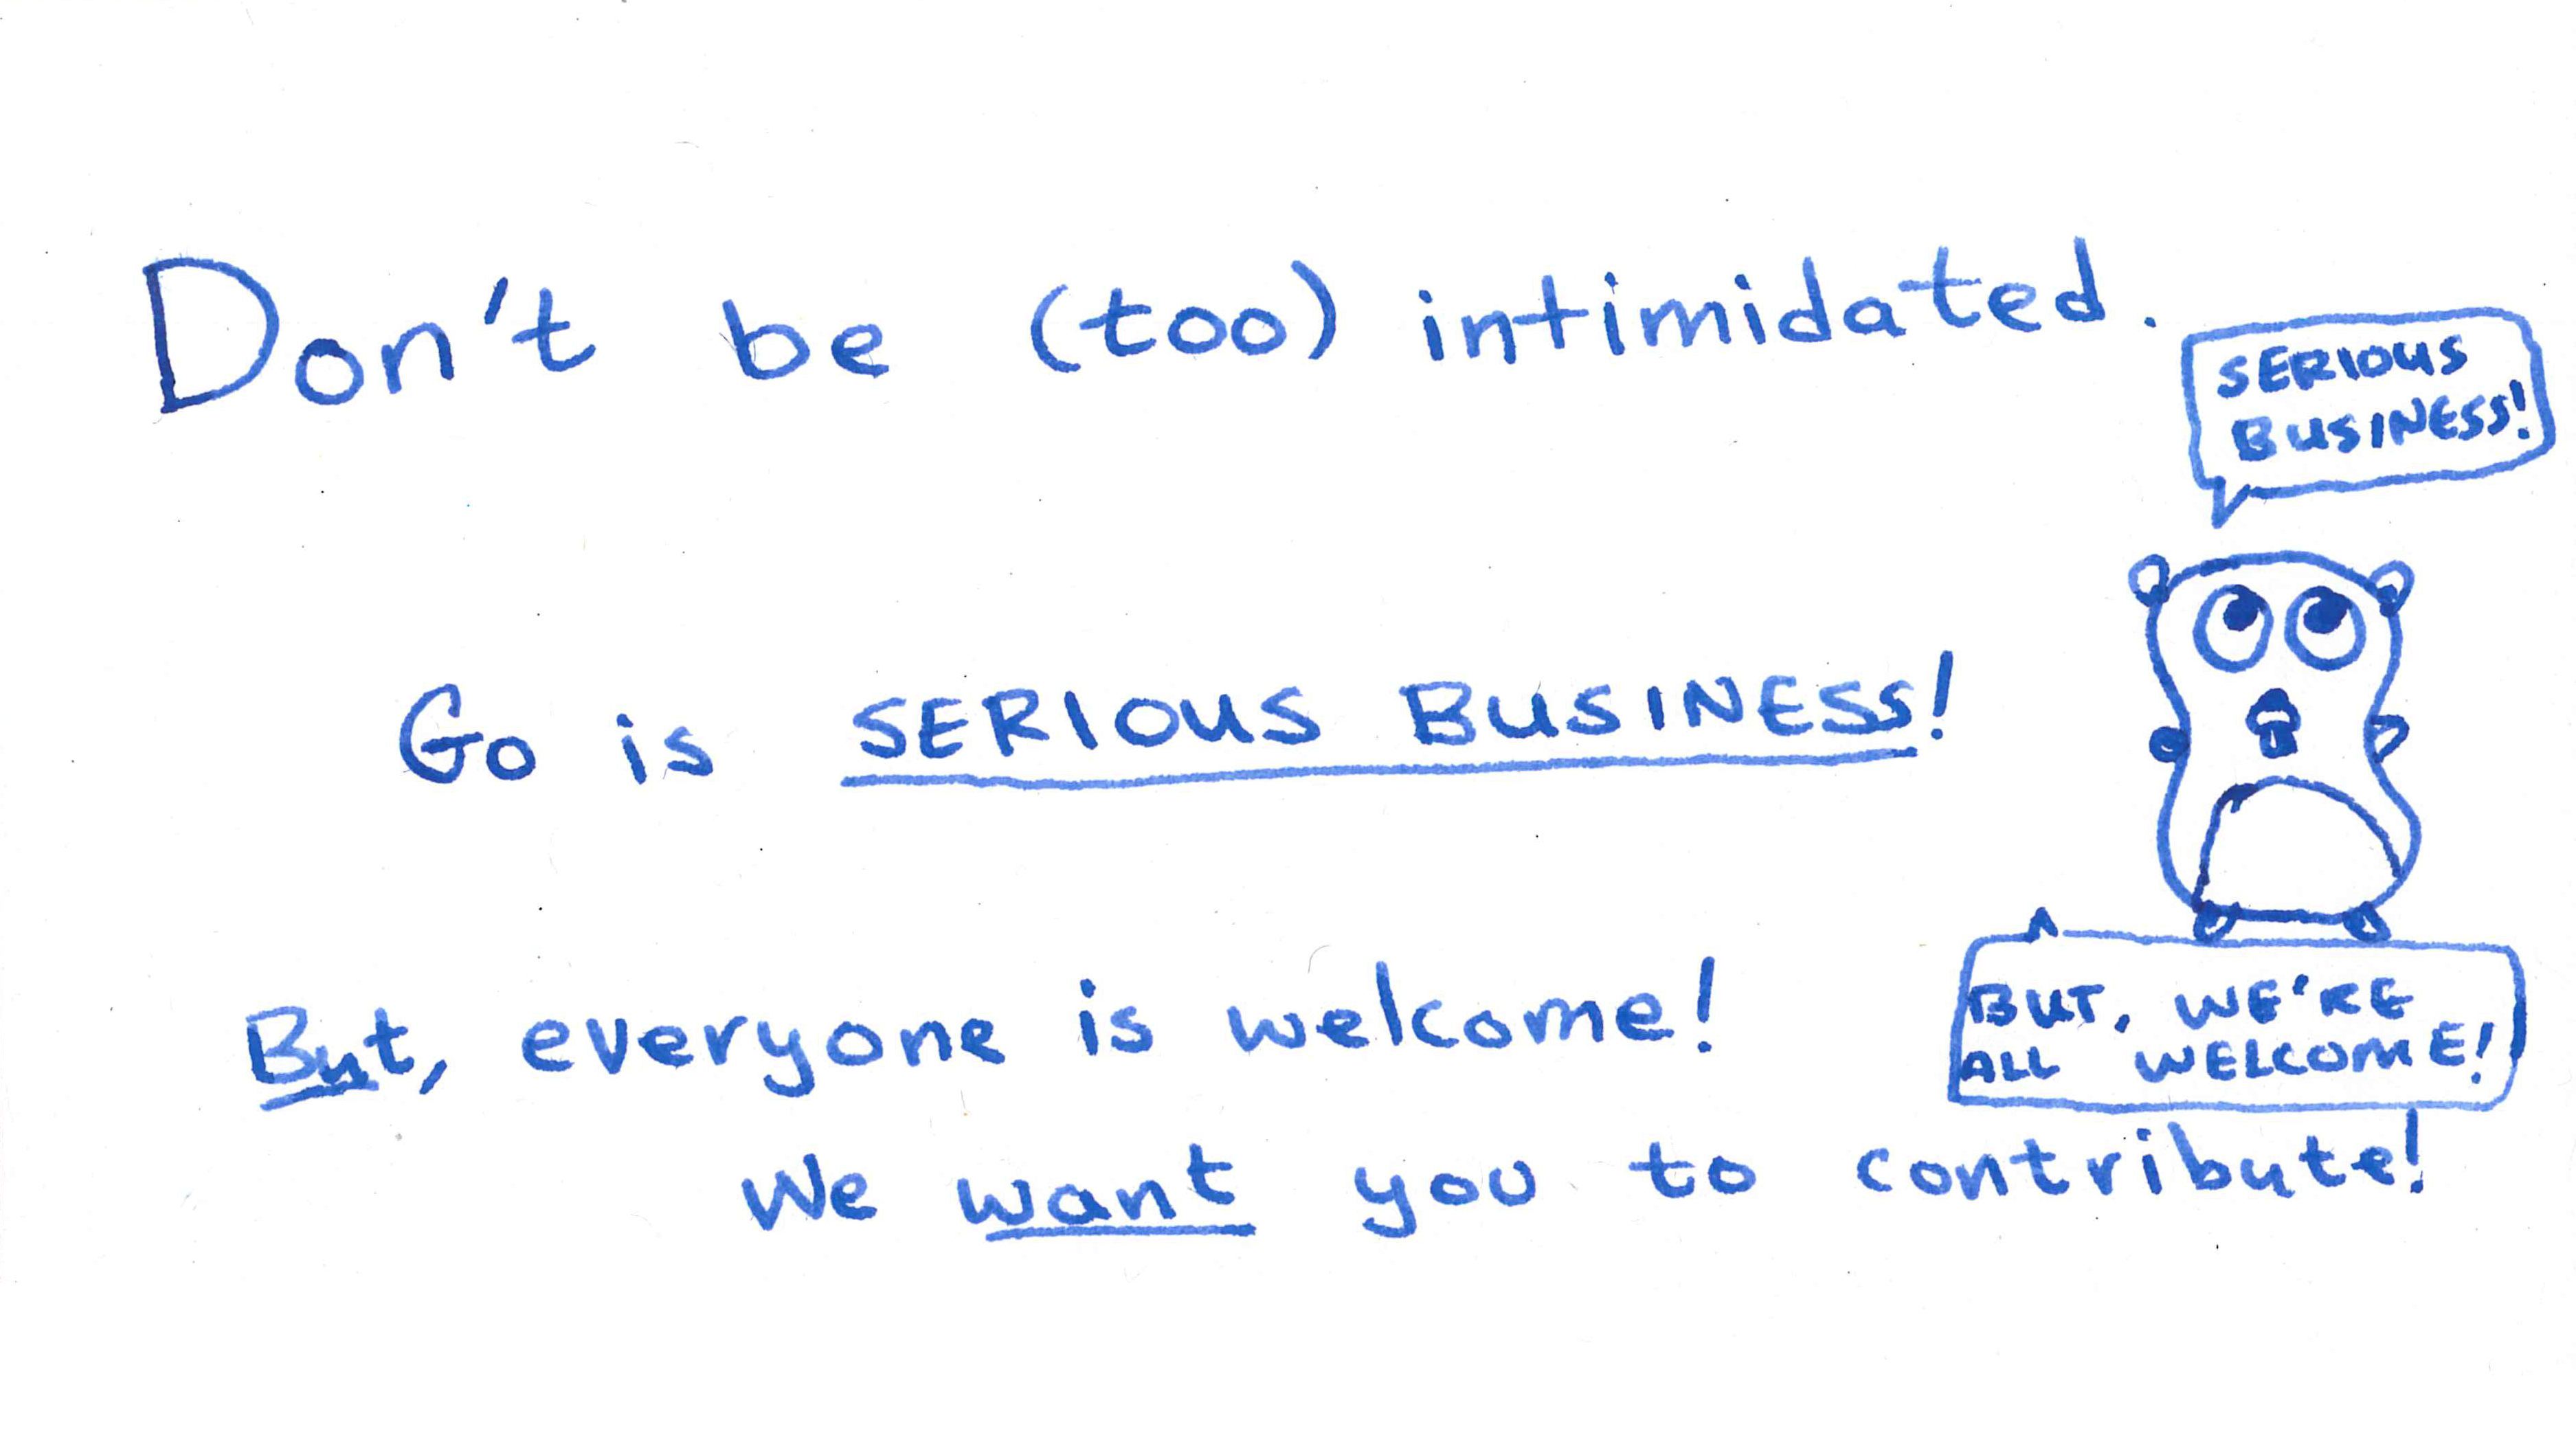 Don't be (too) intimidated.
SERIOUS
BUSINESS!
Go is SERIOUS BUSINESS!
But, everyone is welcome!
BUT, WE'RE
ALL WELCOME!
We want you to contribute!